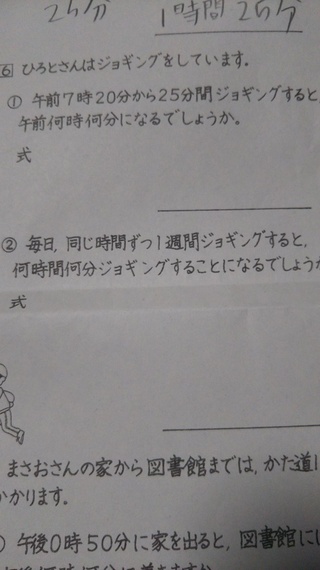 25分
1時間25分
6 ひろとさんはジョギングをしています。
① 午前7時20分から25分間ジョギングすると
午前何時何分になるでしょうか。
式
② 毎日,同じ時間ずつ1週間ジョギングすると,
何時間何分ジョギングすることになるでしょうか
式
まさおさんの家から図書館までは,かた道1
かかります。
午後0時50分に家を出ると,図書館に